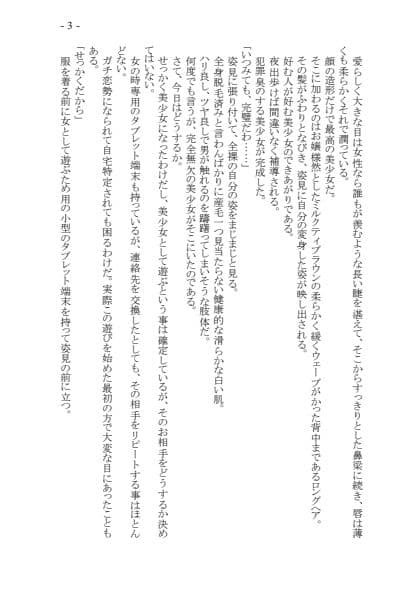 - 3 -
愛らしく大きな目は女性なら誰もが羨むような長い睫を湛えて、そこからすっきりとした鼻梁に続き、唇は薄
くも柔らかくそれで潤っている。
顔の造形だけで最高の美少女だ。
そこに加わるのはお嬢様然としたミルクティブラウンの柔らかく緩くウェーブがかった背中まであるロングヘア。
その髪がふわりとなびき、姿見に自分の変身した姿が映し出される。
好む人が好む美少女のできあがりである。
夜出歩けば間違いなく補導される。
犯罪臭のする美少女が完成した。
「いつみても、完璧だわ……」
姿見に張り付いて、全裸の自分の姿をまじまじと見る。
全身脱毛済みと言わんばかりに産毛一つ見当たらない健康的な滑らかな白い肌。
ハリ良し、ツヤ良しで男が触れるのを躊躇ってしまいそうな肢体だ。
何度でも言うが、完全無欠の美少女がそこにいたのである。
さて、今日はどうするか。
せっかく美少女になったわけだし、美少女として遊ぶという事は確定しているが、そのお相手をどうするか決め
てはいない。
女の時専用のタブレット端末も持っているが、連絡先を交換したとしても、その相手をリピートする事はほとん
どない。
ガチ恋勢になられて自宅特定されても困るわけだ。実際この遊びを始めた最初の方で大変な目にあったことも
ある。
「せっかくだから」
服を着る前に女として遊ぶため用の小型のタブレット端末を持って姿見の前に立つ。